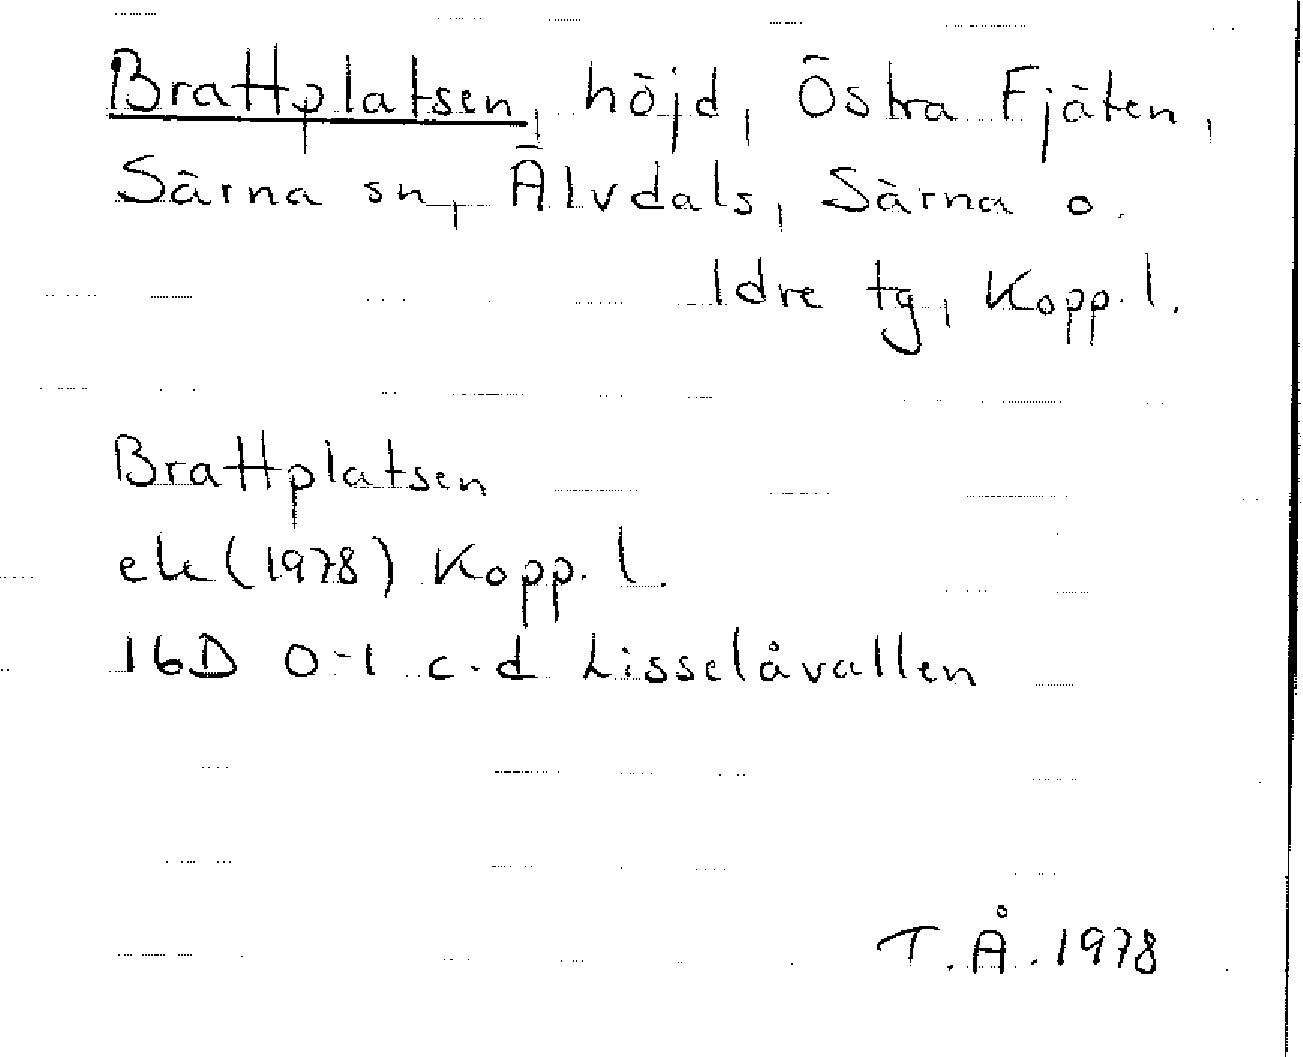 Brattplatsen, höjd, Östra Fjäten,
Särna sn, Älvdals, Särna o.
Idre tg, Kopp. l.
Brattplatsen
ek (1978) Kopp. l.
16D 0-1 c-d Lisselåvallen
T.Å. 1978